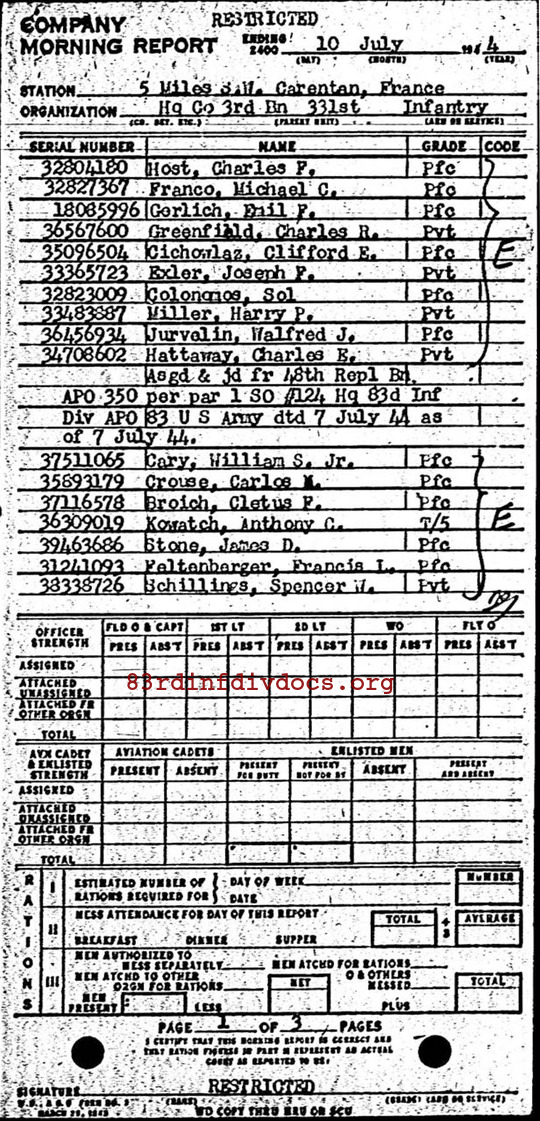 RESTRICTED
COMPANY
MORNING REPORT ENDING 2400 10 July 1944
(DAY) (MONTH) (YEAR)
STATION 5 Miles S.W. Carentan, France
ORGANIZATION Hq Co 3rd Bn 331st Infantry
(CO. DET. ETC.) (PARENT UNIT) (ARM OR SERVICE)
SERIAL NUMBER NAME GRADE CODE
32804180 Host, Charles F. Pfc
32827367 Franco, Michael C. Pfc
18085996 Gerlich, Emil F. Pfc
36567600 Greenfield, Charles R. Pvt
35096504 Cichowlaz, Clifford E. Pfc E
33365723 Exler, Joseph F. Pvt
32823009 Colonomos, Sol Pfc
33483887 Miller, Harry P. Pvt
36456934 Jurvelin, Walfred J. Pfc
34708602 Hattaway, Charles E. Pvt
Asgd & jd fr 48th Repl Bn.
APO 350 per par 1 SO #124 Hq 83d Inf
Div APO 83 U S Army dtd 7 July 44 as
of 7 July 44.
37511065 Cary, William S. Jr. Pfc
35893179 Crouse, Carlos M. Pfc
37116578 Broich, Cletus F. Pfc
36309019 Kowatch, Anthony C. T/5 E
39463686 Stone, James D. Pfc
31241093 Feltenberger, Francis L. Pfc
38338726 Schillings, Spencer W. Pvt
OFFICER STRENGTH FLD O & CAPT 1ST LT 2D LT WO FLT O
PRES ABS'T PRES ABS'T PRES ABS'T PRES ABS'T PRES ABS'T
ASSIGNED
ATTACHED UNASSIGNED
83rdinfdivdocs.org
ATTACHED FR OTHER ORGN
TOTAL
AVN CADET & ENLISTED STRENGTH AVIATION CADETS ENLISTED MEN
PRESENT ABSENT PRESENT FOR DUTY PRESENT NOT FOR DY ABSENT PRESENT AND ABSENT
ASSIGNED
ATTACHED UNASSIGNED
ATTACHED FR OTHER ORGN
TOTAL
RATIONS
I ESTIMATED NUMBER OF RATIONS REQUIRED FOR DAY OF WEEK DATE NUMBER
II MESS ATTENDANCE FOR DAY OF THIS REPORT TOTAL ÷ 3 AVERAGE
BREAKFAST DINNER SUPPER
III MEN AUTHORIZED TO MESS SEPARATELY MEN ATCHD FOR RATIONS
MEN ATCHD TO OTHER ORGN FOR RATIONS NET & OTHERS MESSED TOTAL
MEN PRESENT LESS PLUS
PAGE 1 OF 3 PAGES
I CERTIFY THAT THIS MORNING REPORT IS CORRECT AND
THAT RATION FIGURES IN PART III REPRESENT AN ACTUAL
COUNT AS REPORTED TO ME.
RESTRICTED
SIGNATURE
(NAME) (GRADE) (ARM OR SERVICE)
W.D., A.G.O. FORM NO. 1
MARCH 1943
WD COPY THRU MRU OR SCU